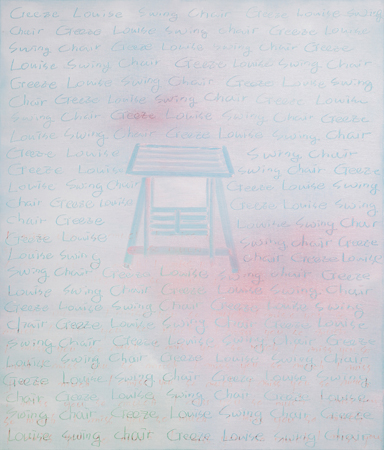 Creeze Louise Swing Chair Creeze Louise Swing
Chair Creeze Louise Swing chair Creeze Louise
Swing Chair Creeze Louise Swing Chair Creeze
Louise Swing Chair Creeze Louise Swing Chair
Creeze Louise Swing Chair Creeze Louise Swing
Chair Creeze Louise Swing Chair Creeze Louise
Swing Chair Creeze Louise Swing Chair Creeze
Louise Swing Chair Creeze Louise Swing Chair
Creeze Louise Swing Chair
Creeze Louise Swing Chair Creeze
Louise Swing Chair Creeze Louise Swing
Chair Creeze Louise Swing Chair Creeze
Chair Creeze Louise Swing Chair
Creeze Louise Swing Chair Creeze
Louise Swing chair Creeze Louise
Swing Chair Creeze Louise Swing chair Creeze
Louise Swing Chair Creeze Louise Swing Chair
Creeze Louise Swing Chair Creeze Louise Swing
Chair Creeze Louise Swing Chair Creeze Louise
Swing Chair Creeze Louise Swing Chair Creeze
Louise Swing Chair Creeze Louise Swing Chair
Creeze Louise Swing Chair Creeze Louise Swing
Chair Creeze Louise Swing Chair Creeze Louise
Swing chair Creeze Louise Swing Chair Creeze
Louise Swing Chair Creeze Louise Swing Chair